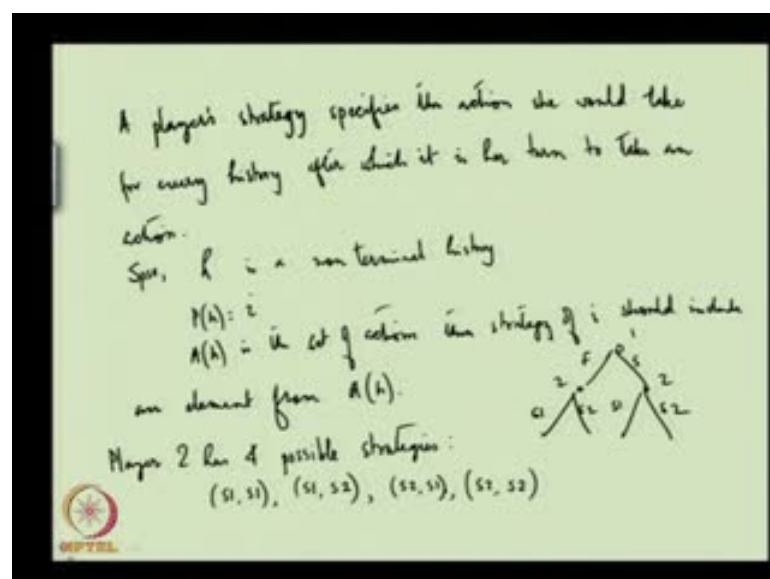 A player's strategy specifies the action she would take
for every history after which it is her turn to take an
action.
Spse, h is a non terminal history
P(h) = i
A(h) is the set of actions then strategy of i should include
an element from A(h).
1
F S
2 2
S1 S2 S1 S2
Player 2 has 4 possible strategies:
(S1, S1), (S1, S2), (S2, S1), (S2, S2)
NPTEL